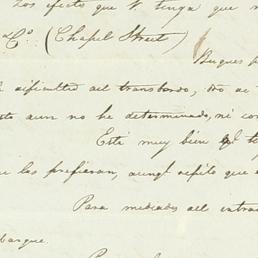 los efectos que V. tenga que
y Cº (Chapel Street)
Buques
dificultad del transbordo, no
aun no he determinado, ni
Está muy bien qe
las prefieran, aunqe repito que
Para mediados del entran
barque.